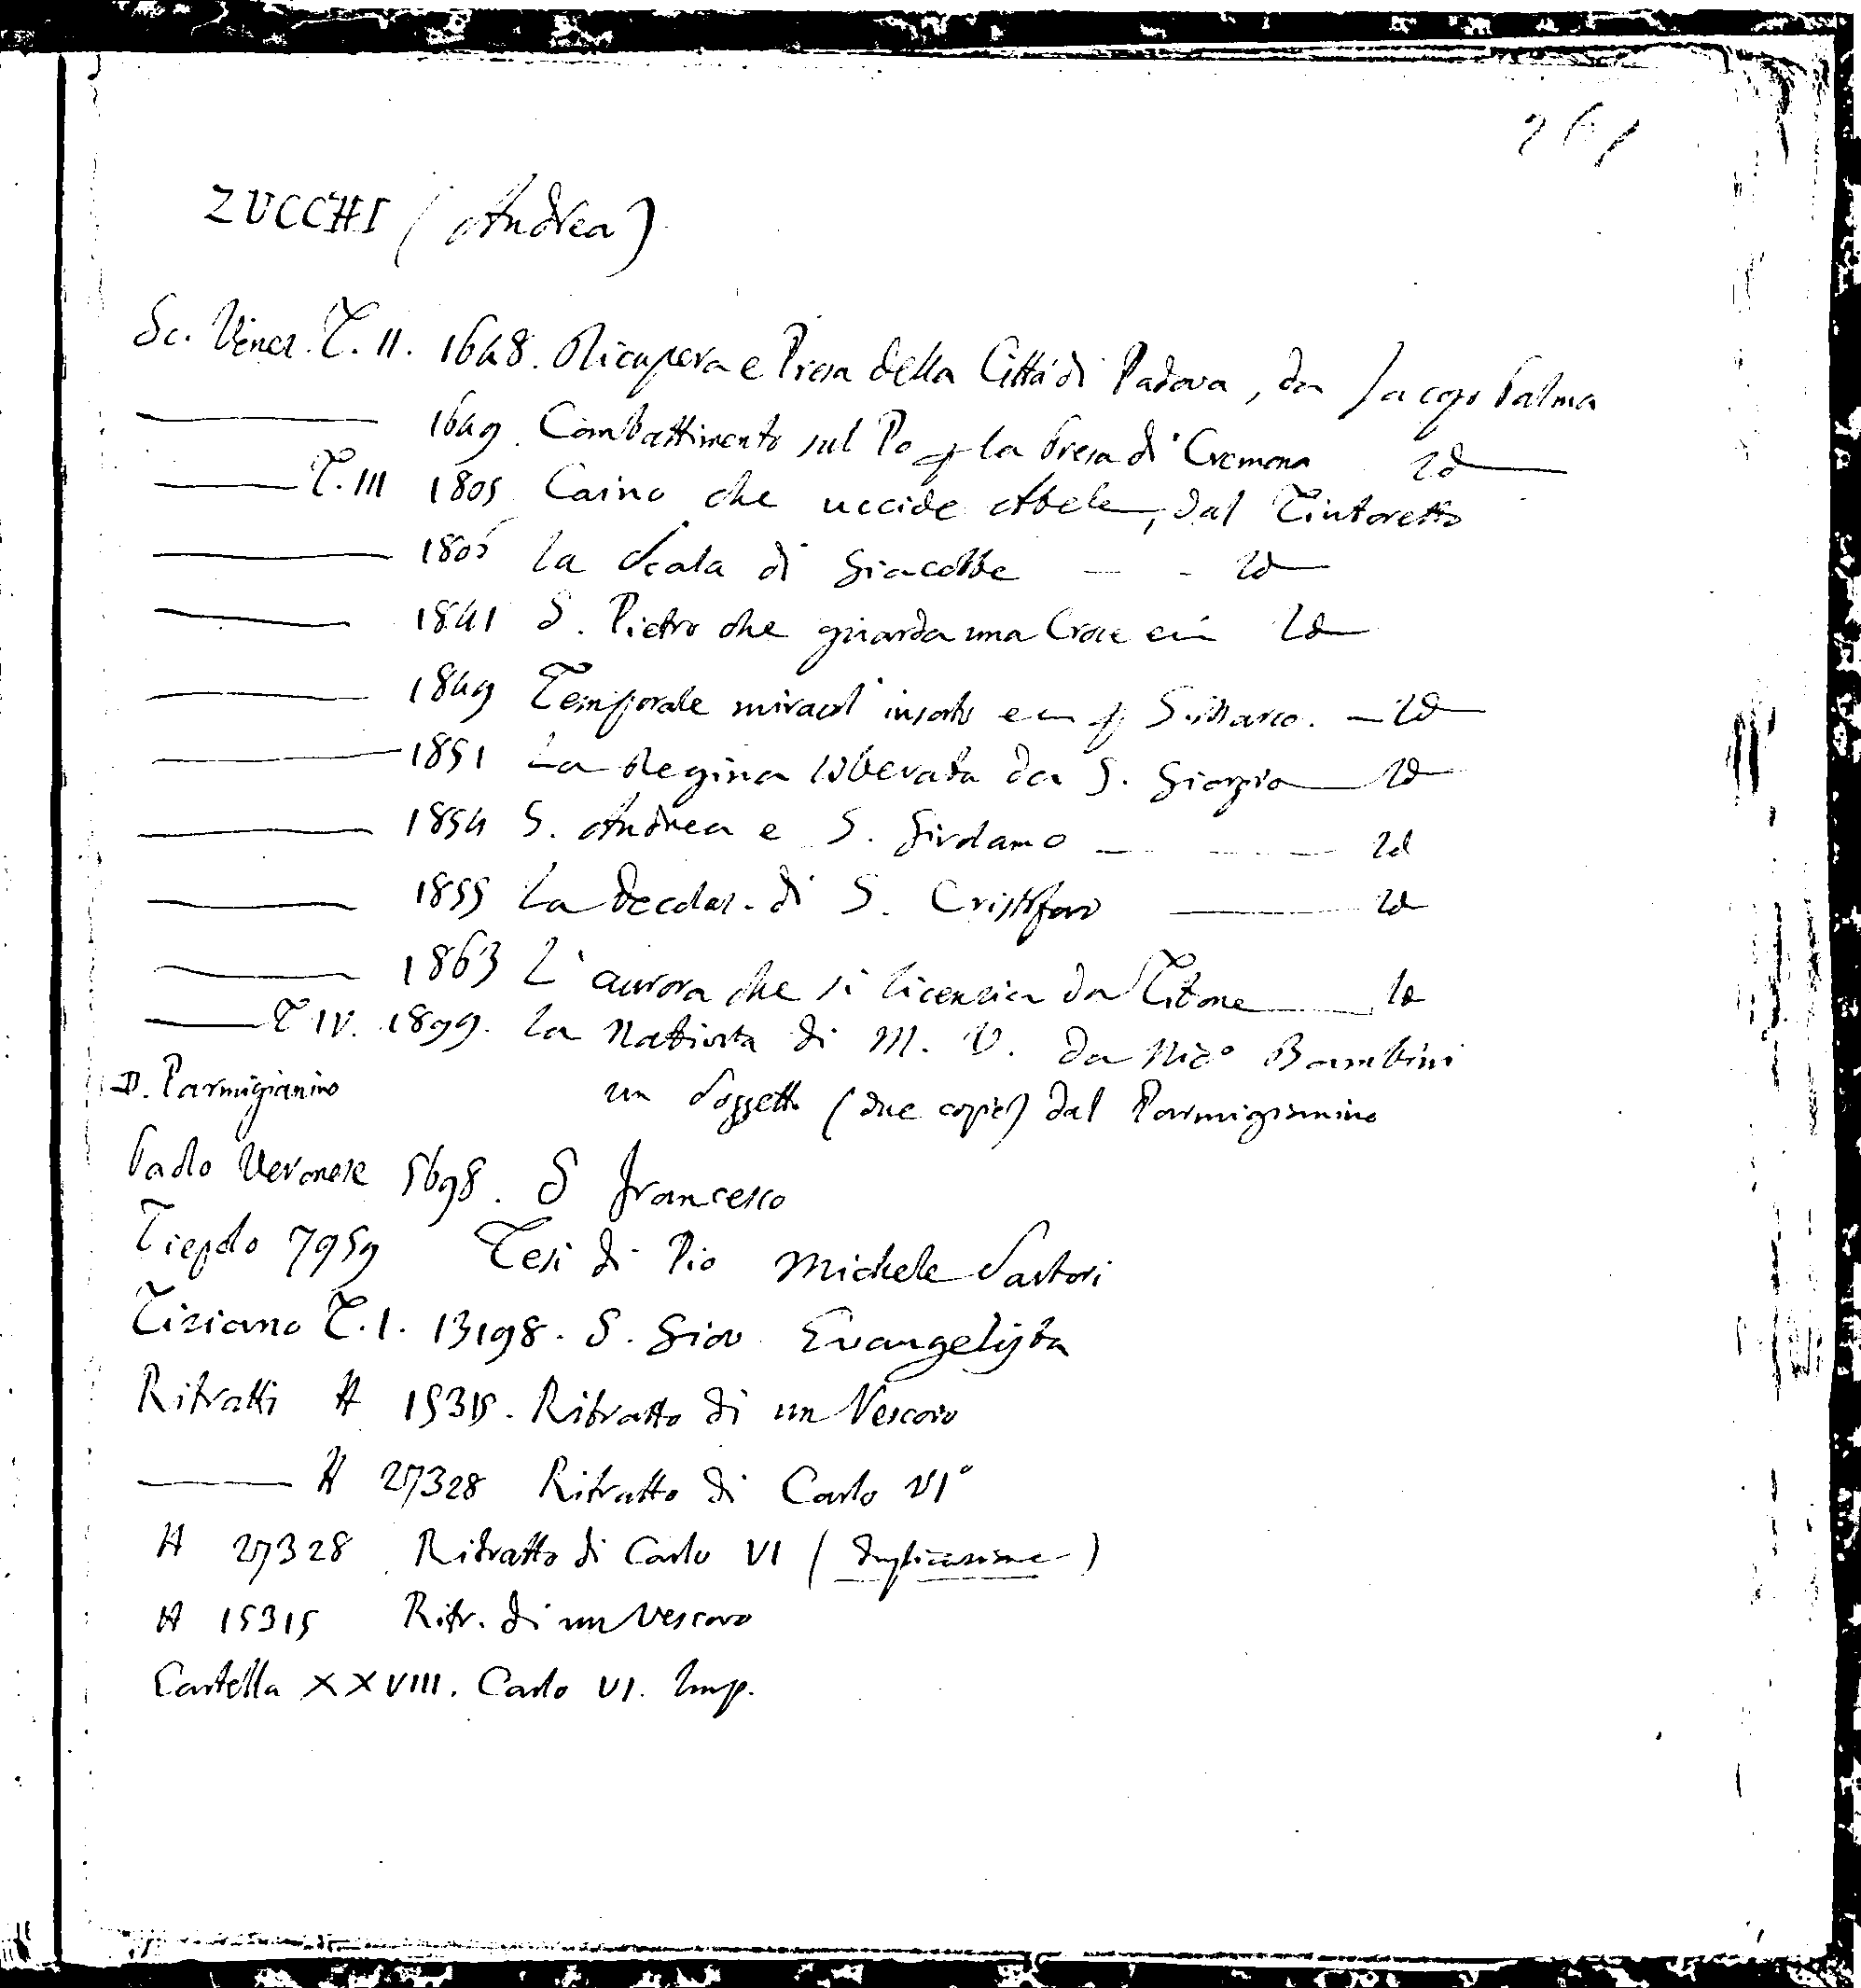 261
ZUCCHI (Andrea)
Sc. Venez. T. II. 1648. Ricupera e Presa della Città di Padova, da Jacopo Palma
——— 1649. Combattimento sul Po p la Presa di Cremona Id——
——— T. III 1805 Caino che uccide Abele, dal Tintoretto
——— 1806 La Scala di Giacobbe — - Id—
——— 1841 S. Pietro che guarda una Croce ec Id—
——— 1849 Temporale miracol insorto ec p S. Marco. — Id—
——— 1851 La Regina liberata da S. Giorgio — Id—
——— 1854 S. Andrea e S. Girolamo — — Id
——— 1855 La Decolaz. di S. Cristoforo ——— Id
——— 1863 L'aurora che si licenzia da Titone —— Id
——— T IV. 1899. La Nattività di M. V. da Nicº Bambini
D. Parmigianino un Soggetto (due copie) dal Parmigianino
Paolo Veronese 5698. S Francesco
Tiepolo 7959 Tesi di Pio Michele Sartori
Tiziano T. I. 13198. S. Giov. Evangelista
Ritratti H 15315. Ritratto di un Vescovo
——— H 27328 Ritratto di Carlo VIº
H 27328 Ritratto di Carlo VI (duplicazione)
H 15315 Ritr. di un Vescovo
Cartella XXVIII. Carlo VI. Imp.